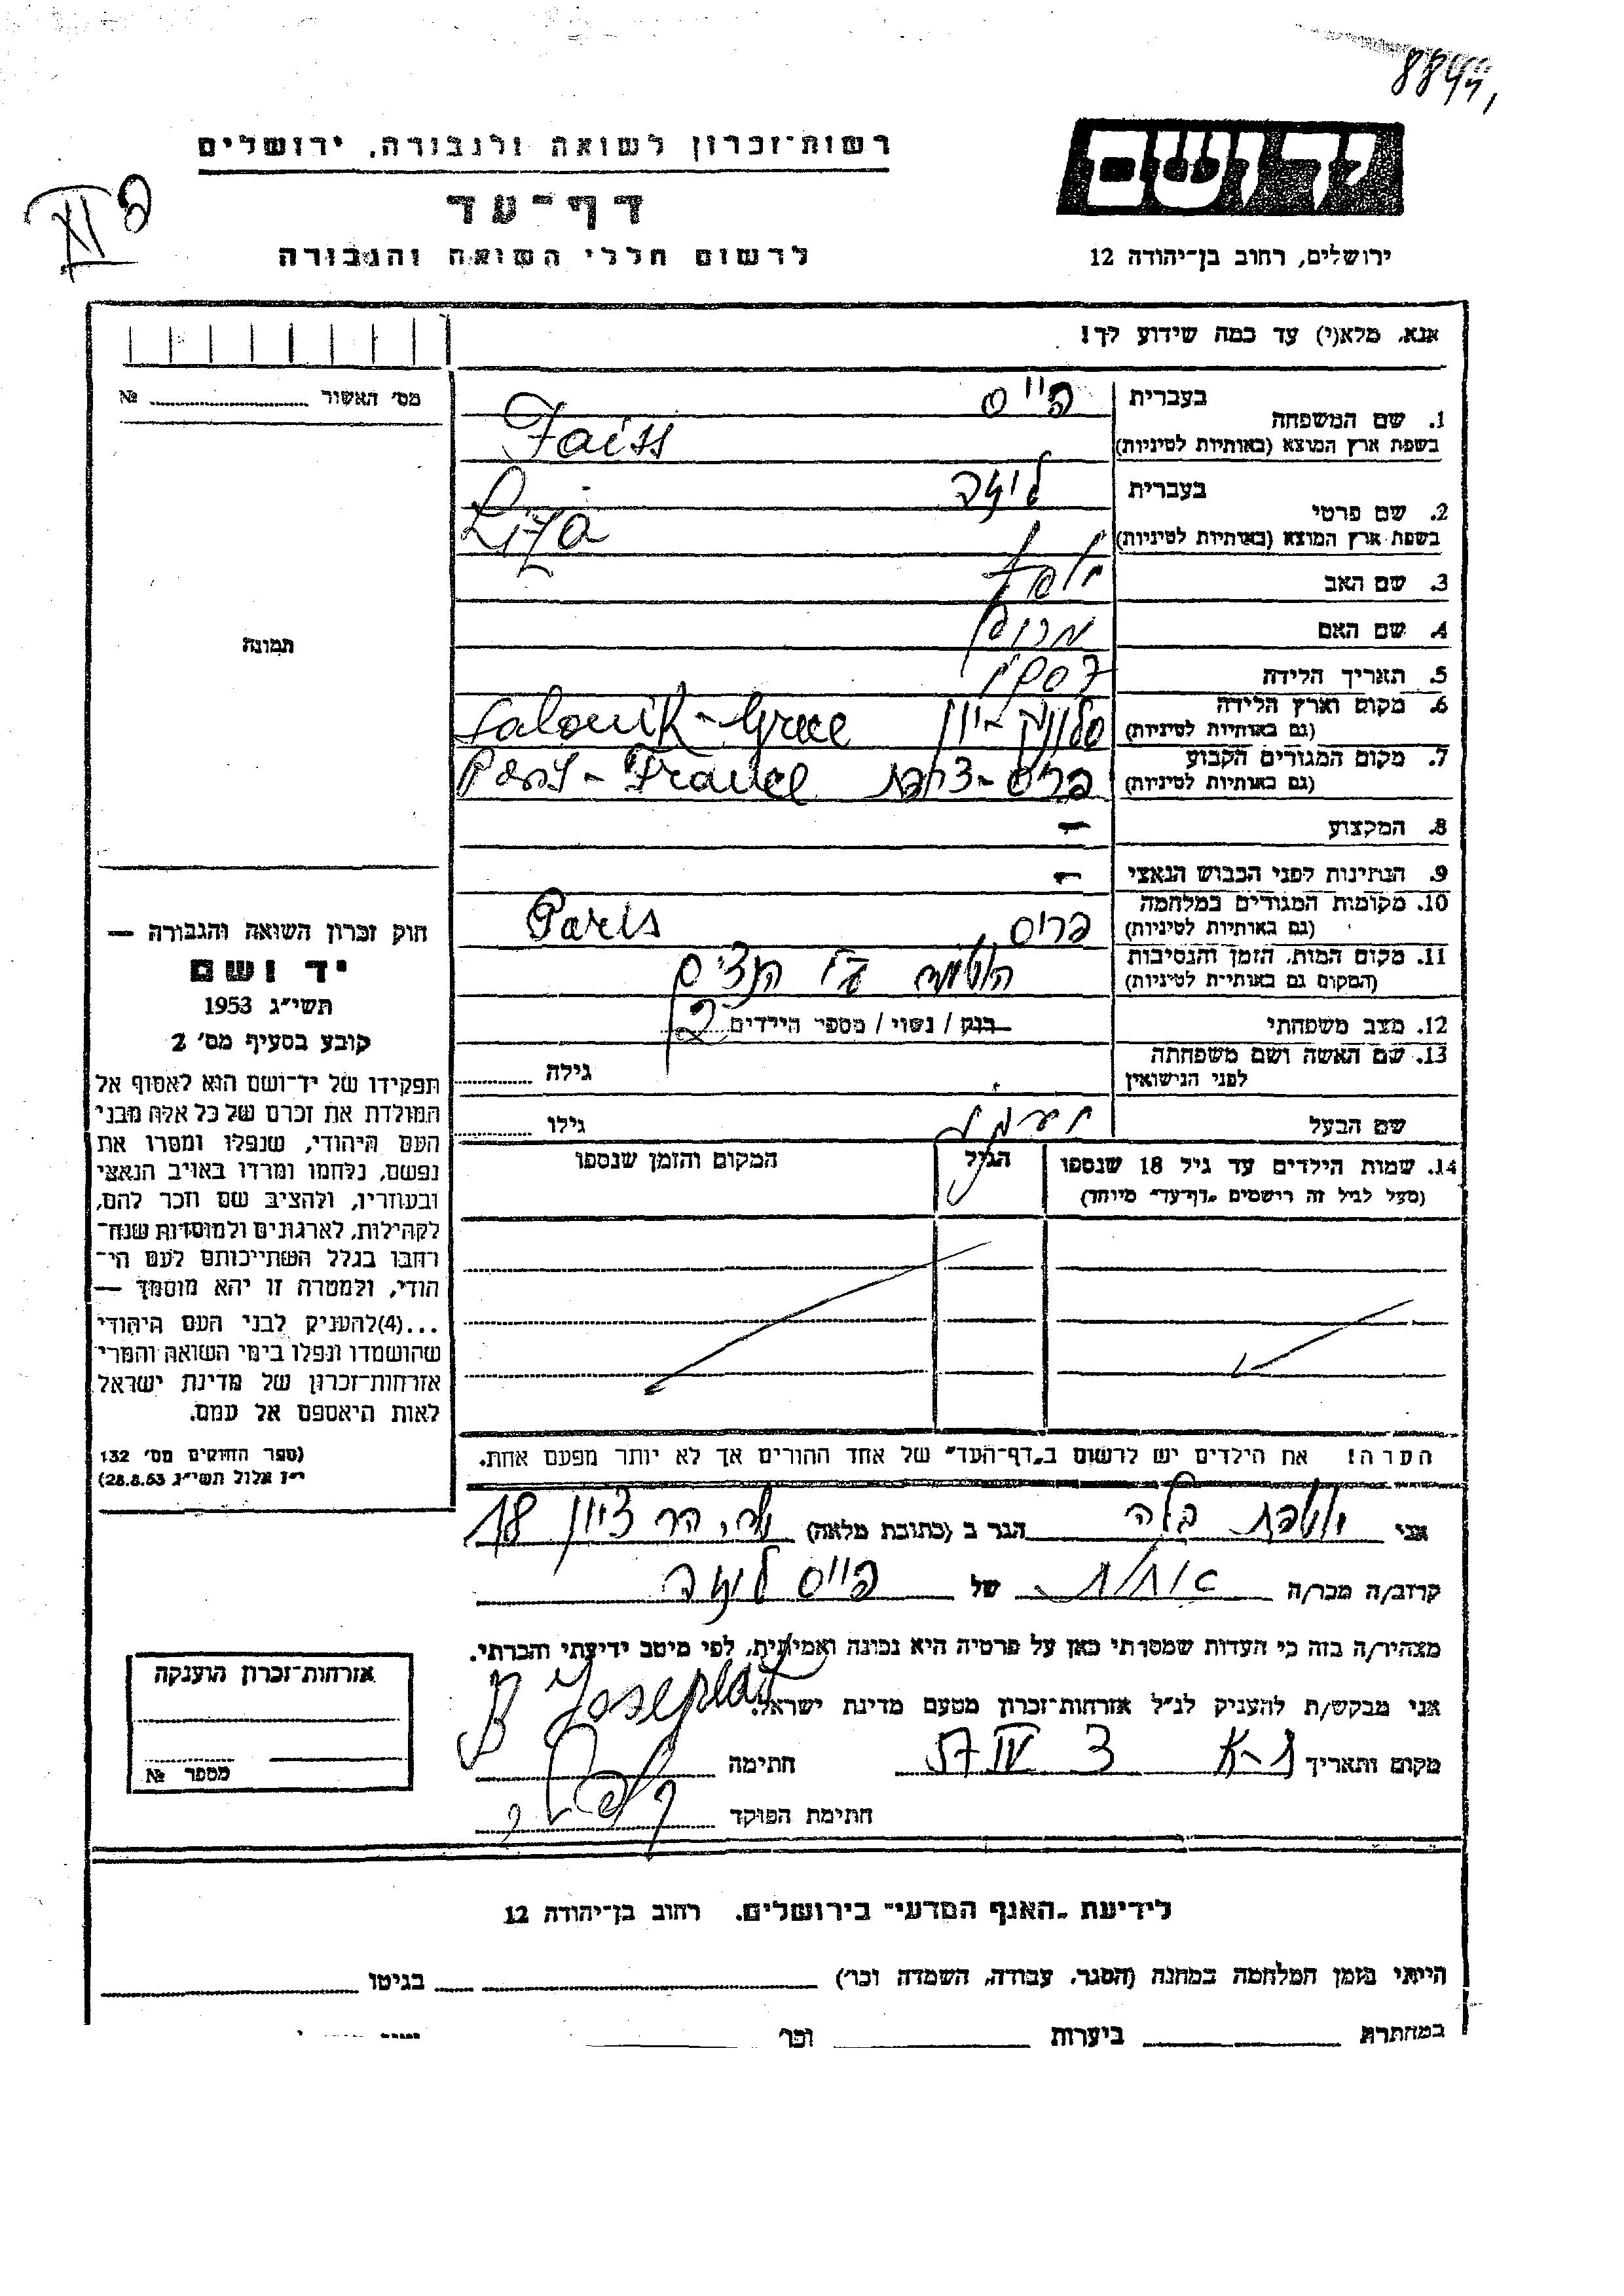 רשות-זכרון לשואה ולגבורה, ירושלים
דף-עד
לרשום חללי השואה והגבורה
יד ושם
ירושלים, רחוב בן-יהודה 12
אנא, מלא(י) עד כמה שידוע לך!
מס' האשור № 
1. שם המשפחה בעברית פייס
בשפת ארץ המוצא (באותיות לטיניות) Faiss
2. שם פרטי בעברית ליזה
בשפת ארץ המוצא (באותיות לטיניות) Liza
3. שם האב יוסף
4. שם האם מרים
5. תאריך הלידה
6. מקום וארץ הלידה סלוניק - יוון Salonik - Grece
(גם באותיות לטיניות)
7. מקום המגורים הקבוע פריס - צרפת France
(גם באותיות לטיניות)
8. המקצוע -
9. הנתינות לפני הכבוש הנאצי -
10. מקומות המגורים במלחמה פריס Paris
(גם באותיות לטיניות)
11. מקום המות, הזמן והנסיבות הנאצים
(המקום גם באותיות לטיניות)
12. מצב משפחתי רווק / נשוי / מספר הילדים 2
13. שם האשה ושם משפחתה
לפני הנישואין גילה
שם הבעל גילו
14. שמות הילדים עד גיל 18 שנספו הגיל המקום והזמן שנספו
(מעל לגיל זה רישמים "דף-עד" מיוחד)
הערה! את הילדים יש לרשום ב"דף-העד" של אחד ההורים אך לא יותר מפעם אחת.
תמונה
חוק זכרון השואה והגבורה —
יד ושם
תשי"ג 1953
קובע בסעיף מס' 2
תפקידו של יד-ושם הוא לאסוף אל
המולדת את זכרם של כל אלה מבני
העם היהודי, שנפלו ומסרו את
נפשם, נלחמו ומרדו באויב הנאצי
ובעוזריו, ולהציב שם וזכר להם,
לקהילות, לארגונים ולמוסדות שנח-
רבו בגלל השתייכותם לעם הי-
הודי, ולמטרה זו יהא מוסמך —
...(4)להעניק לבני העם היהודי
שהושמדו ונפלו בימי השואה והמרי
אזרחות-זכרון של מדינת ישראל
לאות היאספם אל עמם.
(ספר החוקים מס' 132
י"ז אלול תשי"ג 28.8.53)
אני יוספת בלה הגר ב (כתובת מלאה) הר ציון 18
קרוב/ה מכר/ה אחות של פייס ליזה
מצהיר/ה בזה כי העדות שמסרתי כאן על פרטיה היא נכונה ואמיתית, לפי מיטב ידיעתי והכרתי.
אני מבקש/ת להעניק לנ"ל אזרחות-זכרון מטעם מדינת ישראל.
B Josephat
מקום ותאריך ת-א 3 IV 57 חתימה
חתימת הפוקד
אזרחות-זכרון הוענקה
מספר №
לידיעת "האגף המדעי" בירושלים, רחוב בן-יהודה 12
הייתי בזמן המלחמה במחנה (הסגר, עבודה, השמדה וכו') בגיטו
במחתרת ביערות וכו'